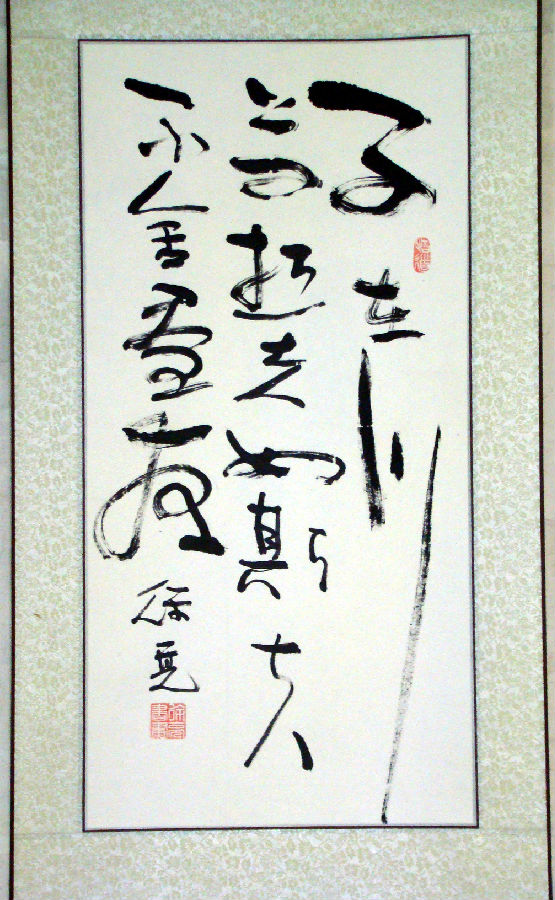 子在川
上曰逝者如斯夫
不舍晝夜
徐亮